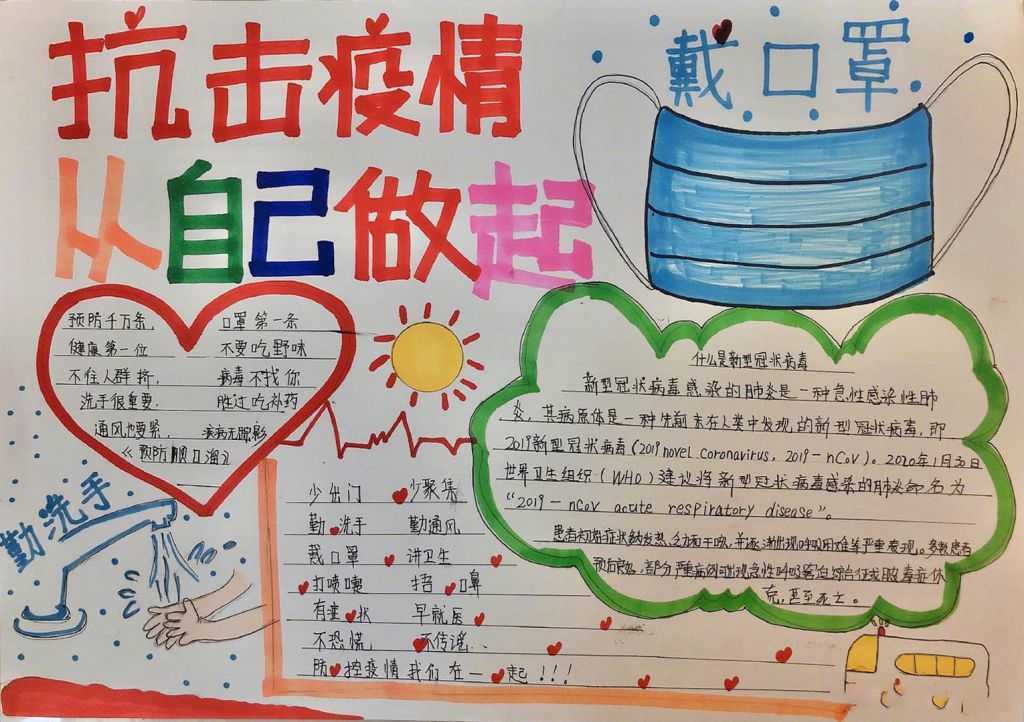 抗击疫情
从自己做起
戴口罩
预防千万条, 口罩第一条
健康第一位 不要吃野味
不住人群挤, 病毒不找你
洗手很重要, 胜过吃补药
通风也要紧, 疾病无踪影
《预防顺口溜》
勤洗手
少出门 少聚集
勤洗手 勤通风
戴口罩 讲卫生
打喷嚏 捂口鼻
有症状 早就医
不恐慌, 不传谣、
防控疫情我们在一起!!!
什么是新型冠状病毒
新型冠状病毒感染的肺炎是一种急性感染性肺
炎,其病原体是一种先前未在人类中发现的新型冠状病毒,即
2019新型冠状病毒(2019 novel coronavirus, 2019-nCoV)。2020年1月30日
世界卫生组织(WHO)建议将新型冠状病毒感染的肺炎命名为
“2019-nCoV acute respiratory disease”。
患者初始症状为发热、乏力和干咳,并逐渐出现呼吸困难等严重表现。多数患者
预后良好,部分严重病例可出现急性呼吸窘迫综合征或脓毒症休
克,甚至死亡。